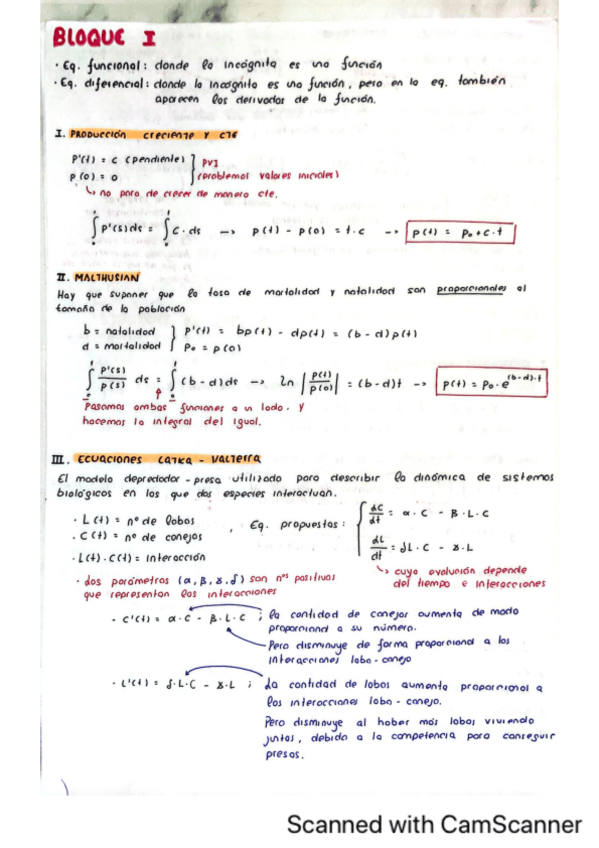 BLOQUE I
· Eq. funcional: donde la incógnita es una función
· Eq. diferencial: donde la incógnita es una función, pero en la eq. también
aparecen las derivadas de la función.
I. PRODUCCIÓN CRECIENTE Y CTE
P'(t) = c (pendiente) } PVI
P(0) = 0 (problemas valores iniciales)
↳ no para de crecer de manera cte.
∫₀ᵗ P'(s)ds = ∫₀ᵗ C · ds → P(t) - P(0) = t·c → P(t) = P₀ + C·t
II. MALTHUSIAN
Hay que suponer que la tasa de mortalidad y natalidad son proporcionales al
tamaño de la población
b = natalidad } P'(t) = bp(t) - dp(t) = (b - d)p(t)
d = mortalidad P₀ = P(0)
∫₀ᵗ P'(s)/P(s) ds = ∫₀ᵗ (b - d)ds → ln |P(t)/P(0)| = (b-d)t → P(t) = P₀ · e^(b-d)·t
Pasamos ambas funciones a un lado, y
hacemos la integral del igual.
III. ECUACIONES LOTKA - VOLTERRA
El modelo depredador - presa utilizado para describir la dinámica de sistemas
biológicos en los que dos especies interactuan.
· L(t) = nº de lobos
· C(t) = nº de conejos
· L(t)·C(t) = interacción
, Eq. propuestas: { dC/dt = α·C - β·L·C
dL/dt = δL·C - γ·L
↳ cuya evolución depende
del tiempo e interacciones
· dos parámetros (α, β, γ, δ) son nºs positivos
que representan las interacciones
· C'(t) = α·C - β·L·C ; la cantidad de conejos aumenta de modo
proporcional a su número.
Pero disminuye de forma proporcional a las
interacciones lobo - conejo
· L'(t) = δ·L·C - γ·L ; La cantidad de lobos aumenta proporcional a
las interacciones lobo - conejo.
Pero disminuye al haber más lobos viviendo
juntos, debido a la competencia para conseguir
presas.
Scanned with CamScanner